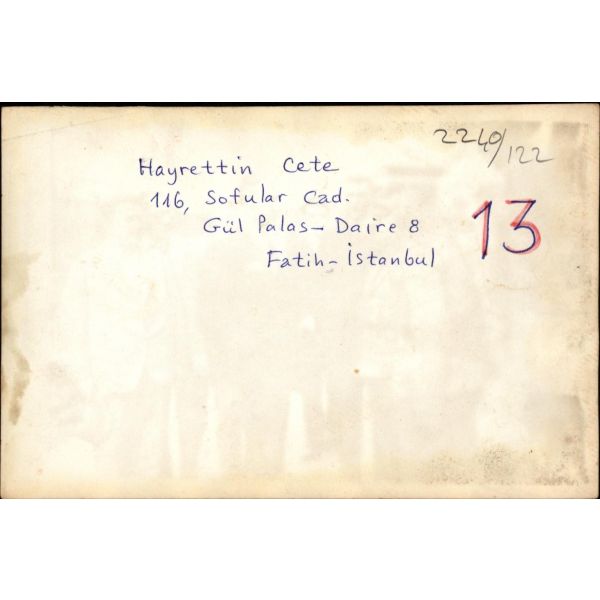 2240/122
Hayrettin Cete
116, Sofular Cad.
Gül Palas- Daire 8
Fatih- İstanbul
13